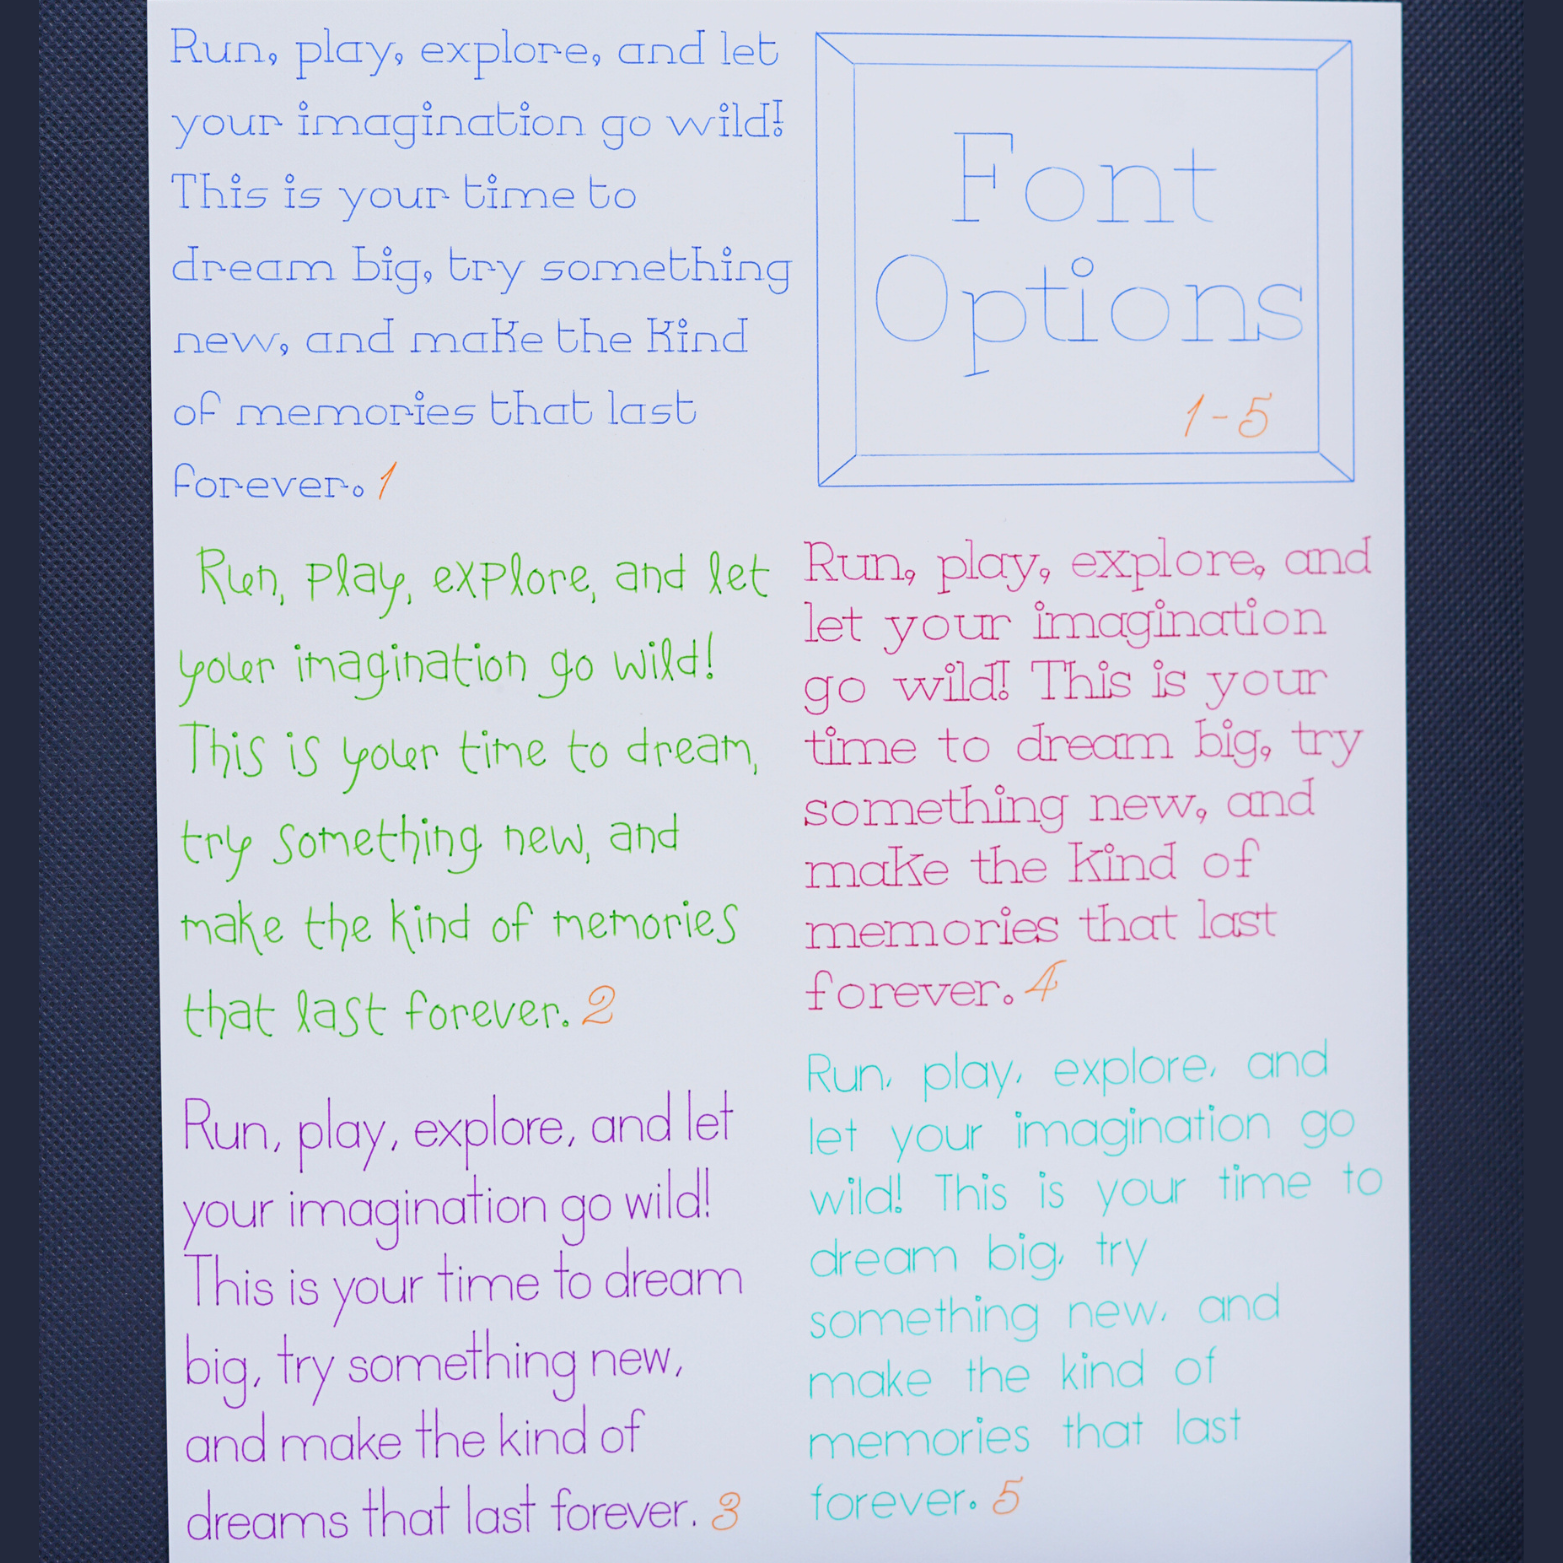 Run, play, explore, and let
your imagination go wild!
This is your time to
dream big, try something
new, and make the kind
of memories that last
forever. 1
Font
Options
1-5
Run, play, explore, and let
your imagination go wild!
This is your time to dream,
try something new, and
make the kind of memories
that last forever. 2
Run, play, explore, and let
your imagination go wild!
This is your time to dream
big, try something new,
and make the kind of
dreams that last forever. 3
Run, play, explore, and
let your imagination
go wild! This is your
time to dream big, try
something new, and
make the kind of
memories that last
forever. 4
Run, play, explore, and
let your imagination go
wild! This is your time to
dream big, try
something new, and
make the kind of
memories that last
forever. 5